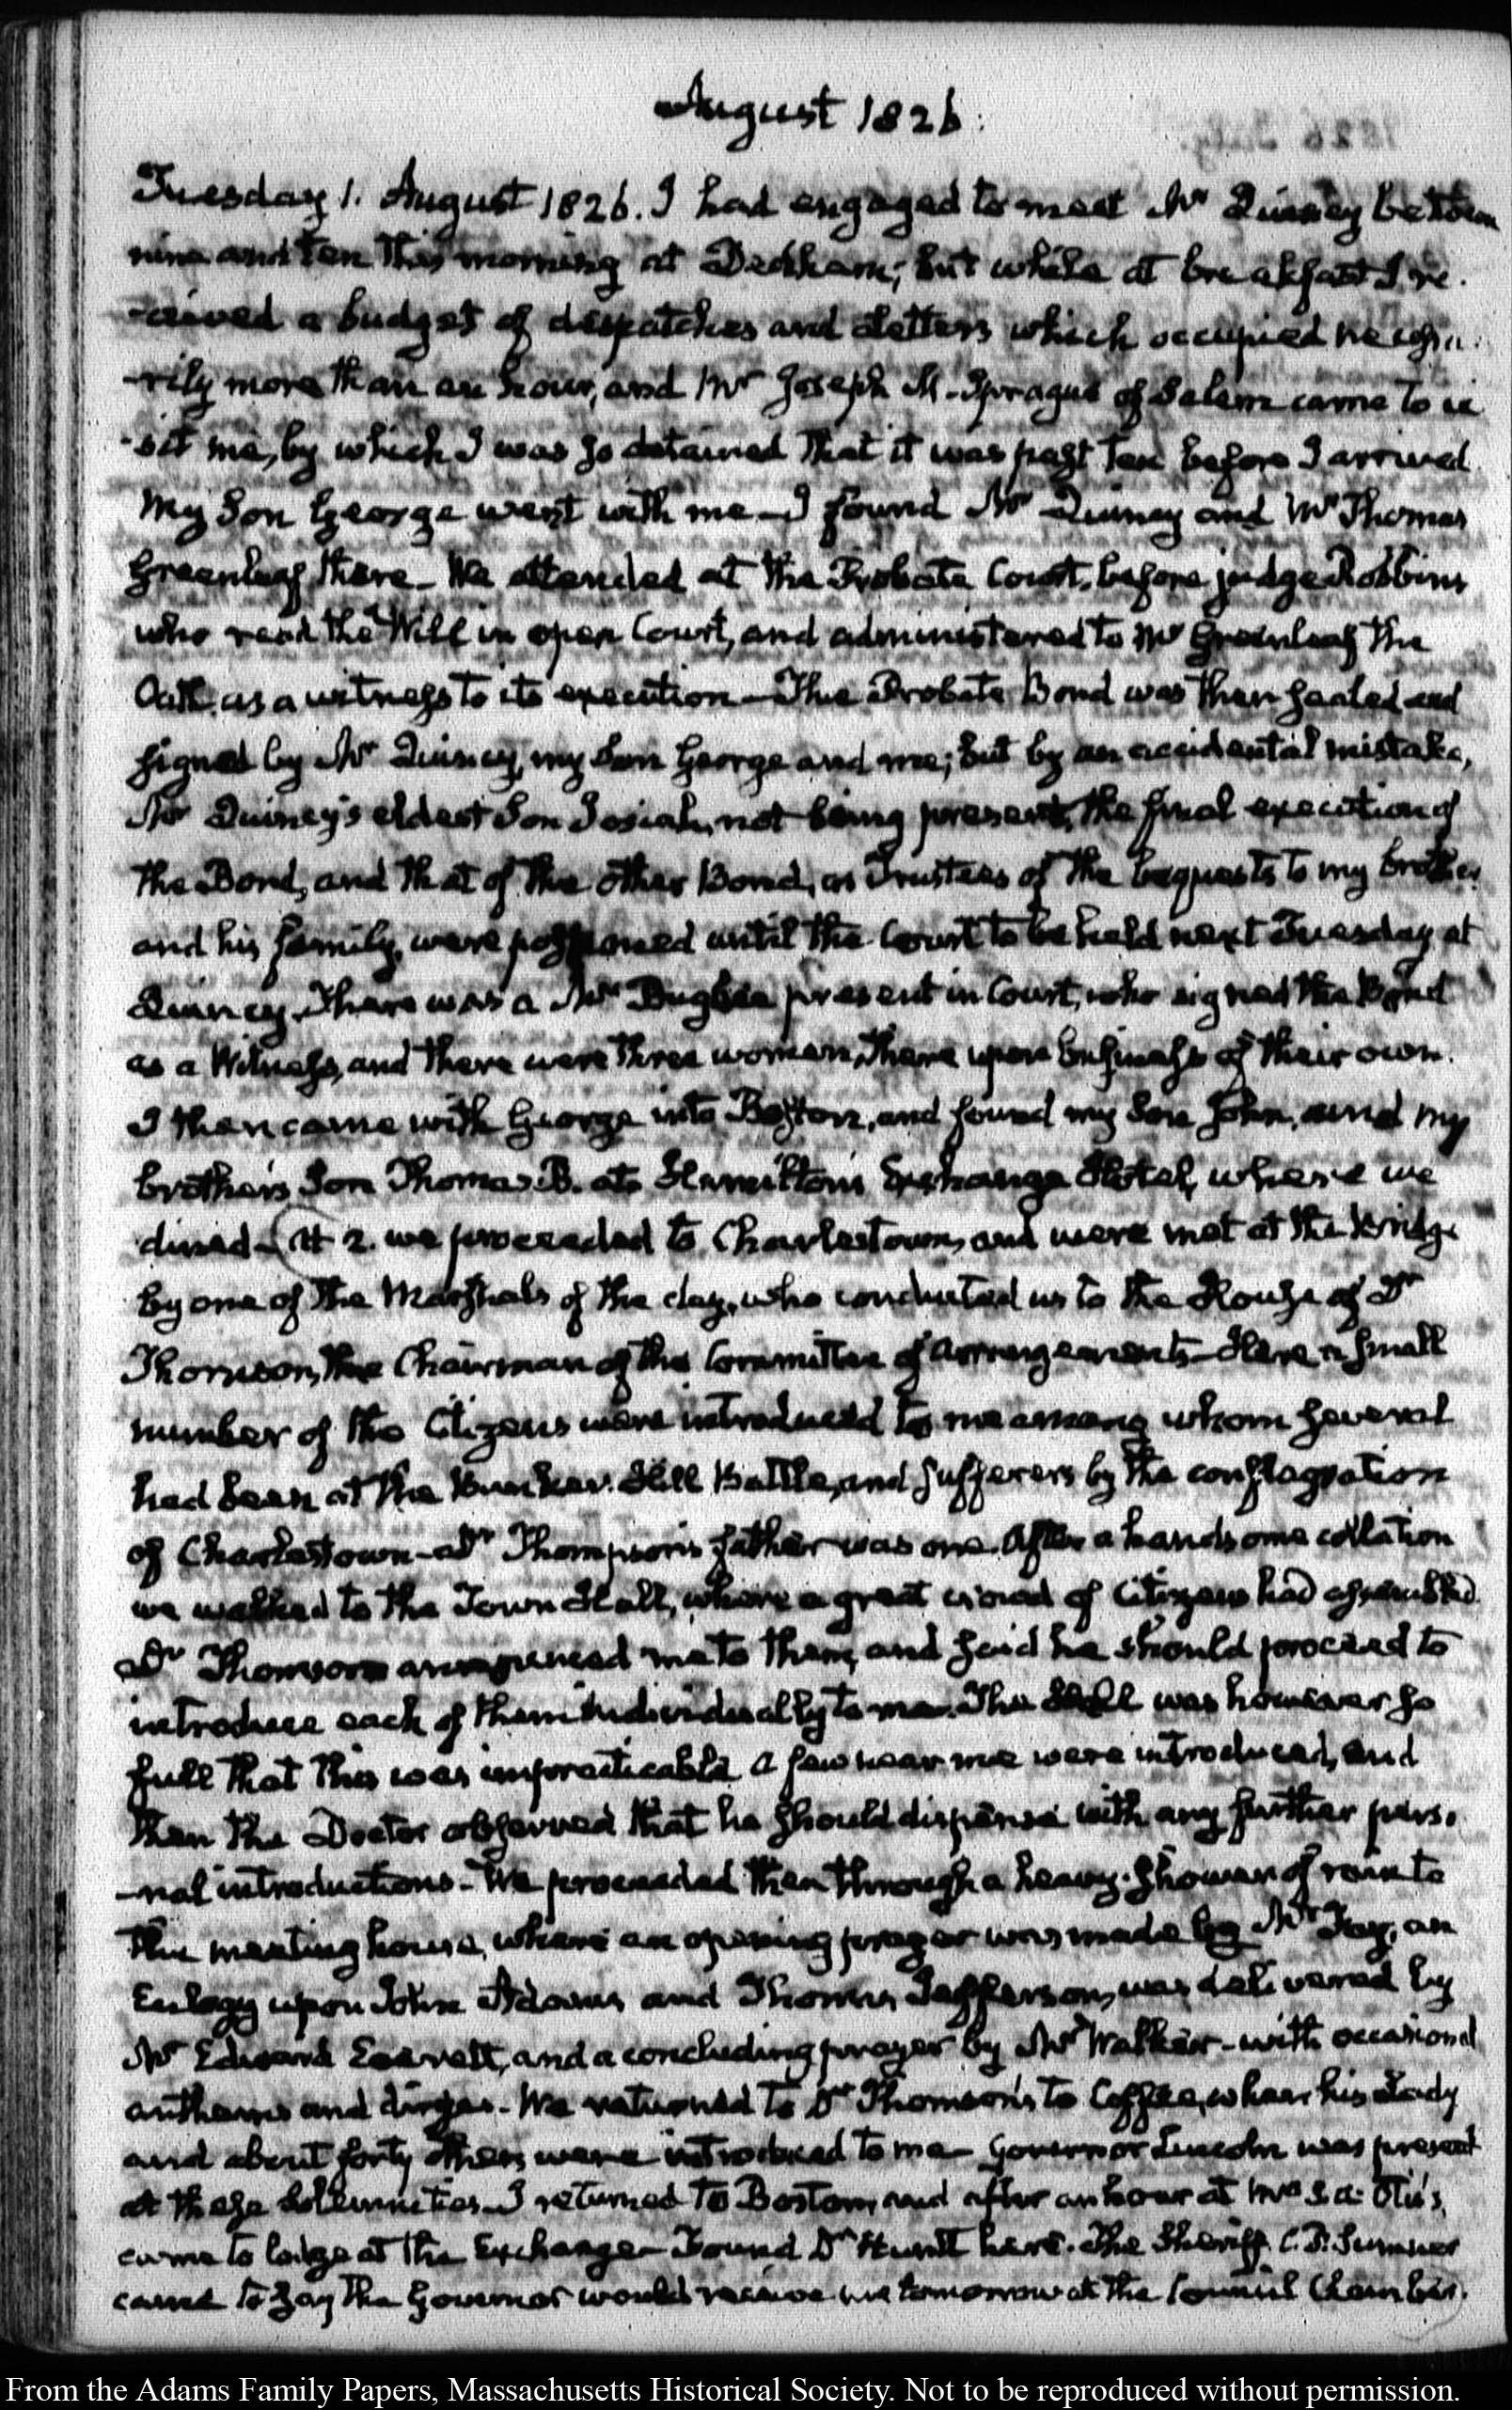 August 1826.
Tuesday 1. August 1826. I had engaged to meet Mr Quincy between
nine and ten this morning at Dedham; but while at breakfast I re-
-ceived a budget of dispatches and letters which occupied necessa-
-rily more than an hour, and Mr Joseph E. Sprague of Salem came to vi
-sit me, by which I was so detained that it was past ten before I arrived.
My Son George went with me — I found Mr Quincy and Mr Thomas
Greenleaf there — We attended at the Probate Court, before judge Robbins
who read the Will in open Court, and administered to Mr Greenleaf the
Oath as a witness to its execution — The Probate Bond was then sealed and
signed by Mr Quincy, my Son George and me; but by an accidental mistake,
Mr Quincy's eldest Son Josiah, not being present, the final execution of
the Bond, and that of the other Bond, as Trustees of the bequests to my brother
and his family, were postponed until the Court to be held next Tuesday at
Quincy. There was a Mr Bugbee present in Court, who signed the Bond
as a Witness, and there were three women, there upon business of their own.
I then came with George into Boston, and found my Son John, and my
brother's Son Thomas B. at Hamilton's Exchange Hotel, where we
dined — At 2. we proceeded to Charlestown, and were met at the bridge
by one of the Marshals of the day, who conducted us to the House of Dr
Thomson, the Chairman of the Committee of arrangements — Here a small
number of the Citizens were introduced to me among whom several
had been at the Bunker-Hill Battle, and sufferers by the conflagration
of Charlestown — Dr Thompson's father was one. After a handsome collation
we walked to the Town Hall, where a great crowd of Citizens had assembled.
Dr Thomson announced me to them, and said he should proceed to
introduce each of them individually to me. The Hall was however so
full that this was impracticable. A few near me were introduced, and
then the Doctor observed that he should dispense with any further perso-
-nal introductions — We proceeded then through a heavy shower of rain to
the meeting house, where an opening prayer was made by Mr Fay, an
Eulogy upon John Adams and Thomas Jefferson, was delivered by
Mr Edward Everett, and a concluding prayer by Mr Walker — with occasional
anthems and dirges — We returned to Dr Thomson's to Coffee, where his Lady
and about forty others were introduced to me — Governor Lincoln was present
at these Solemnities — I returned to Boston, and after an hour at Mrs S. A. Otis's,
came to lodge at the Exchange — Found Dr Hunt here. The Sheriff C. P. Sumner
came to say the Governor would receive me tomorrow at the Council Chamber.
From the Adams Family Papers, Massachusetts Historical Society. Not to be reproduced without permission.